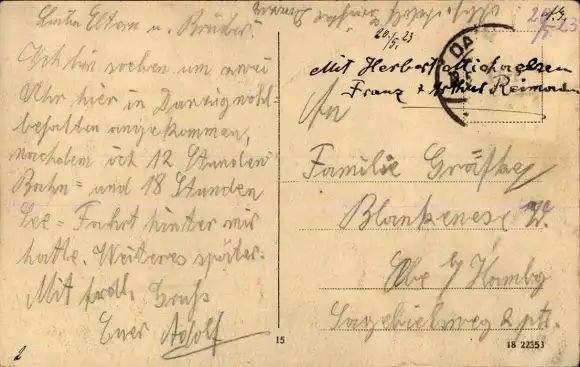 Liebe Eltern u. Brüder!
Ich bin soeben um zwei
Uhr hier in Danzig wohl-
behalten angekommen,
nachdem ich 12 Stunden
Bahn= und 18 Stunden
See=Fahrt hinter mir
hatte. Weiteres später.
Mit frdl. Gruß
Euer Adolf
2
20./5. 23
20/5 23
DA
Mit Herbert Michaelsen
Franz + Arthur Reimann
An
Familie
Blankenese
Elbe b/ Hambg
Sagebielsweg 2 ptr.
15
18 22353